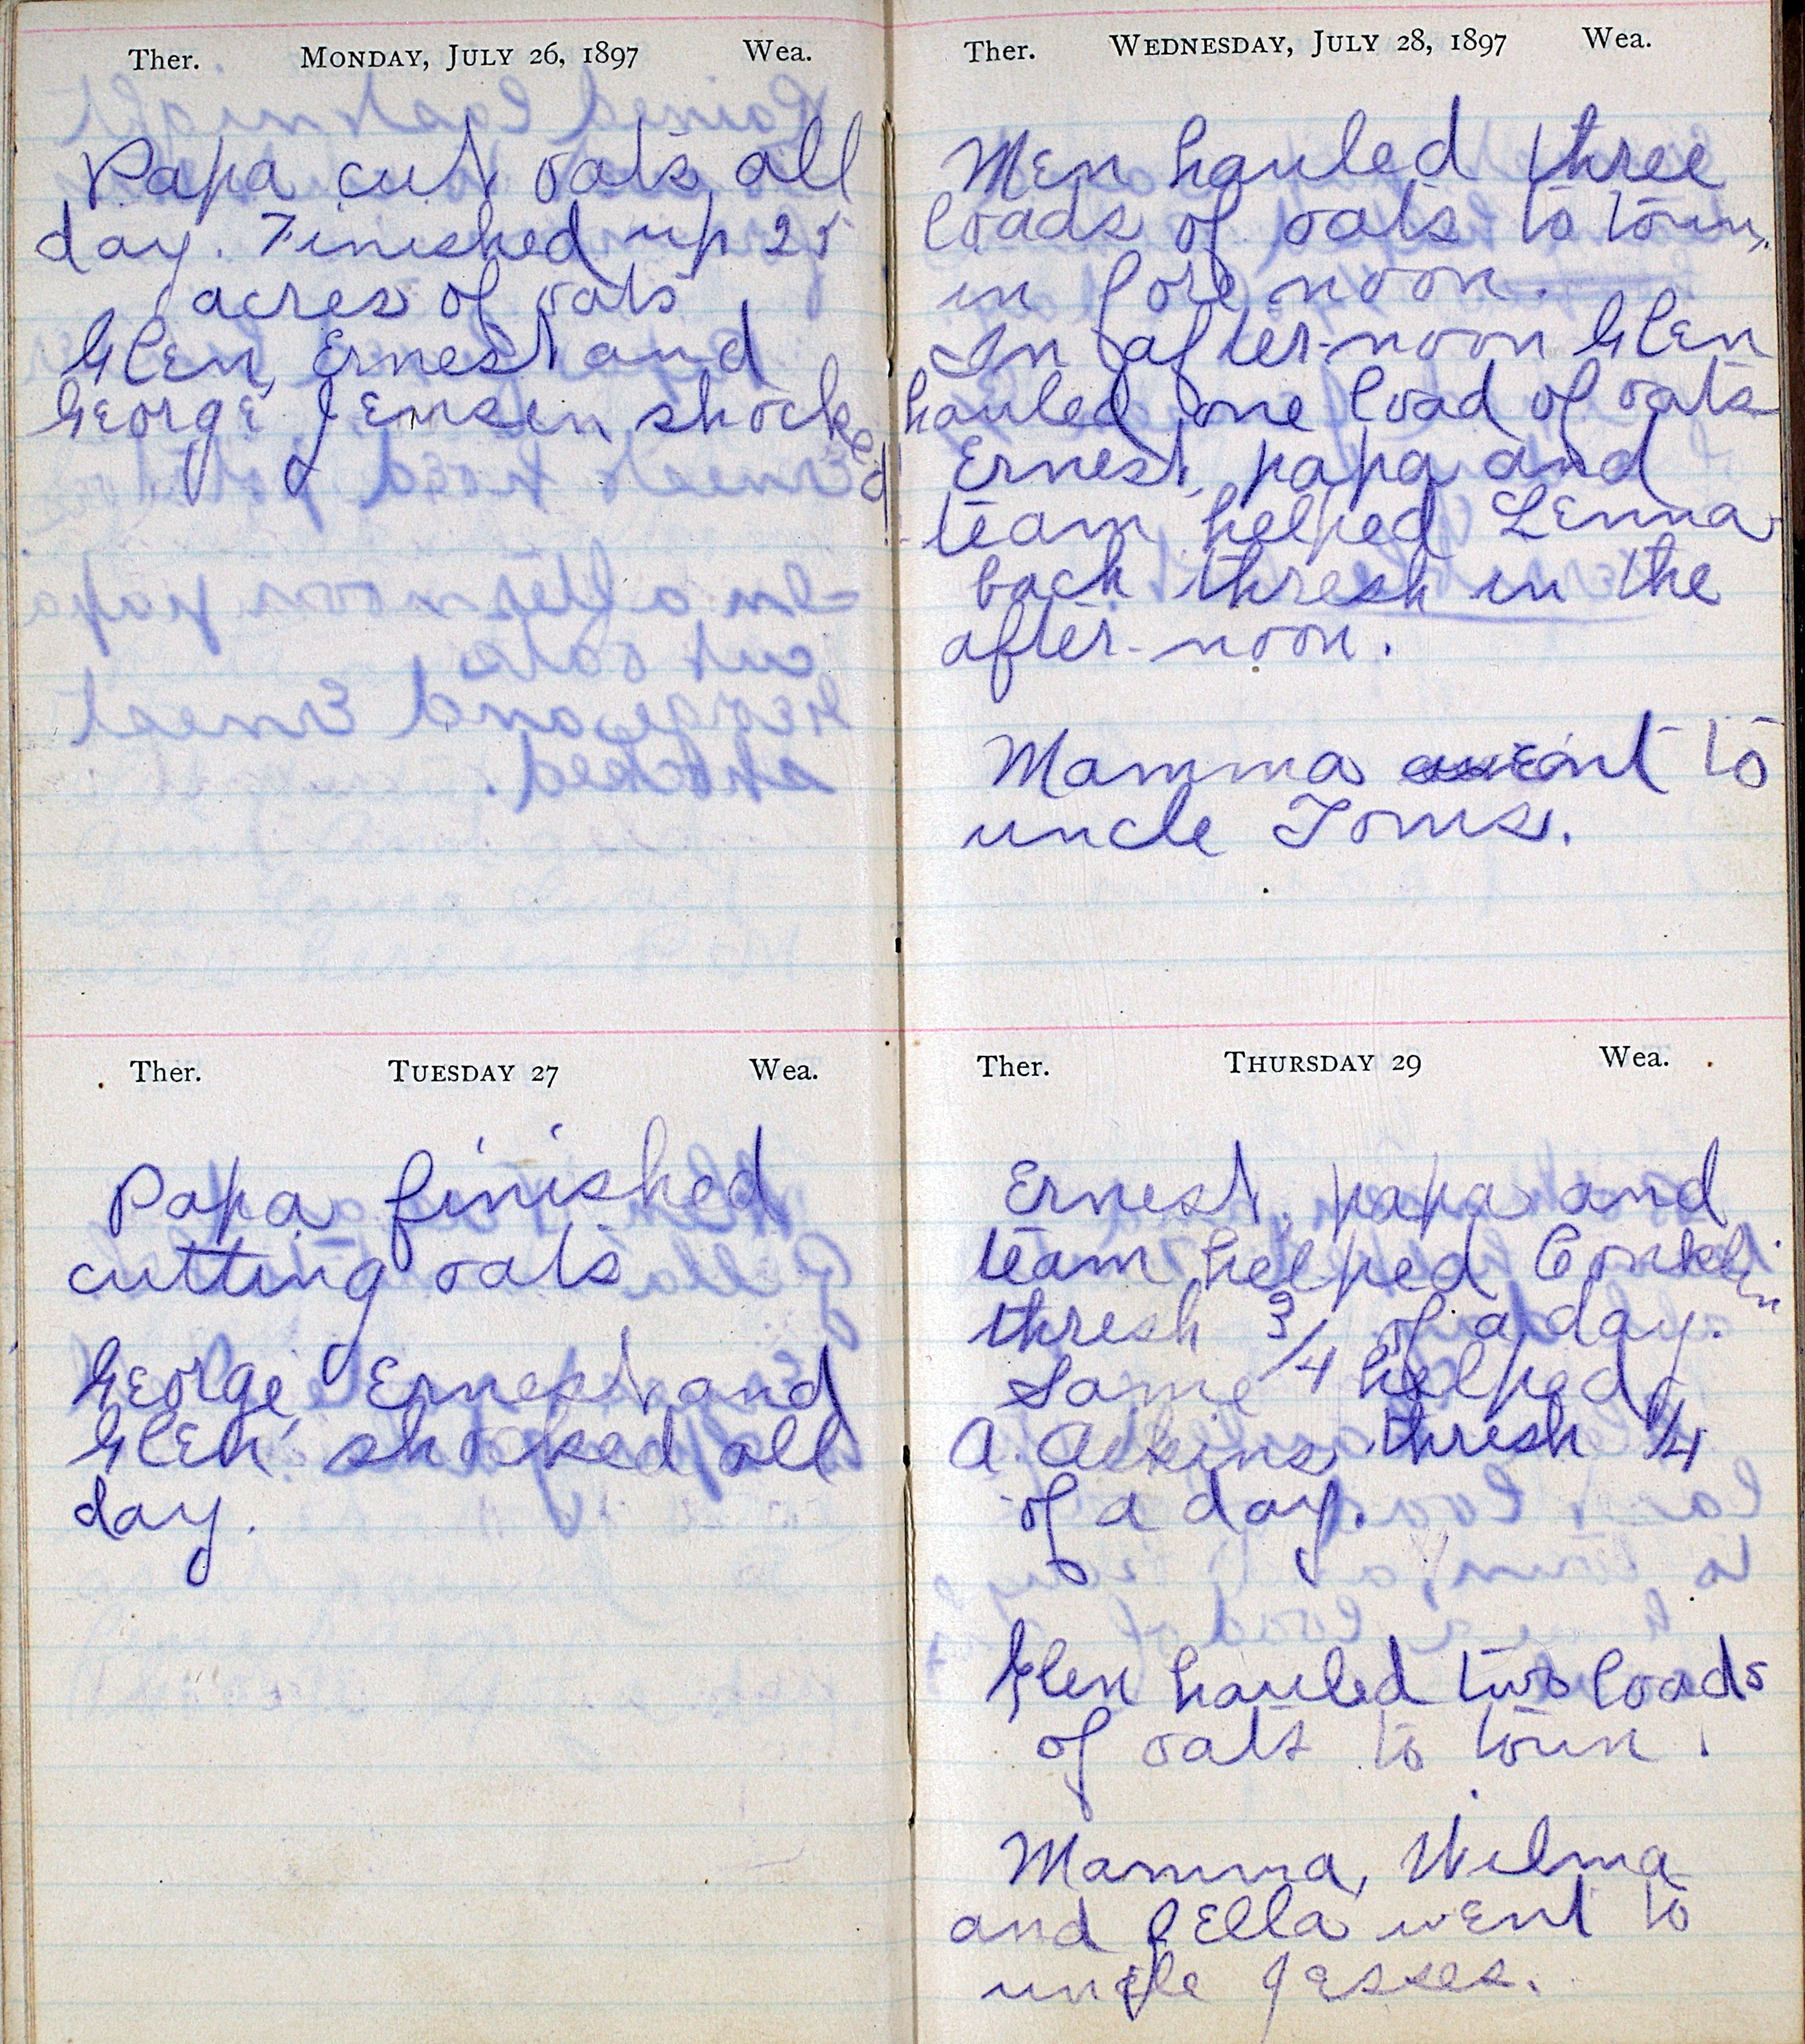 Ther. Monday, July 26, 1897 Wea.
Papa cut oats all
day. Finished up 25
acres of oats
Glen, Ernest and
George Jensen shocked
Ther. Tuesday 27 Wea.
Papa finished
cutting oats
George, Ernest and
Glen shocked all
day.
Ther. Wednesday, July 28, 1897 Wea.
Men hauled three
loads of oats to town,
in fore noon.
In after-noon Glen
hauled one load of oats
Ernest, papa and
team helped Lenna
back thresh in the
after-noon.
Mamma went to
uncle Toms.
Ther. Thursday 29 Wea.
Ernest, papa and
team helped Conklin
thresh 3/4 of a day.
Same helped
A. Adkins thresh 1/4
of a day.
Glen hauled two loads
of oats to town.
Mamma, Wilma
and Jella went to
uncle Jesses.